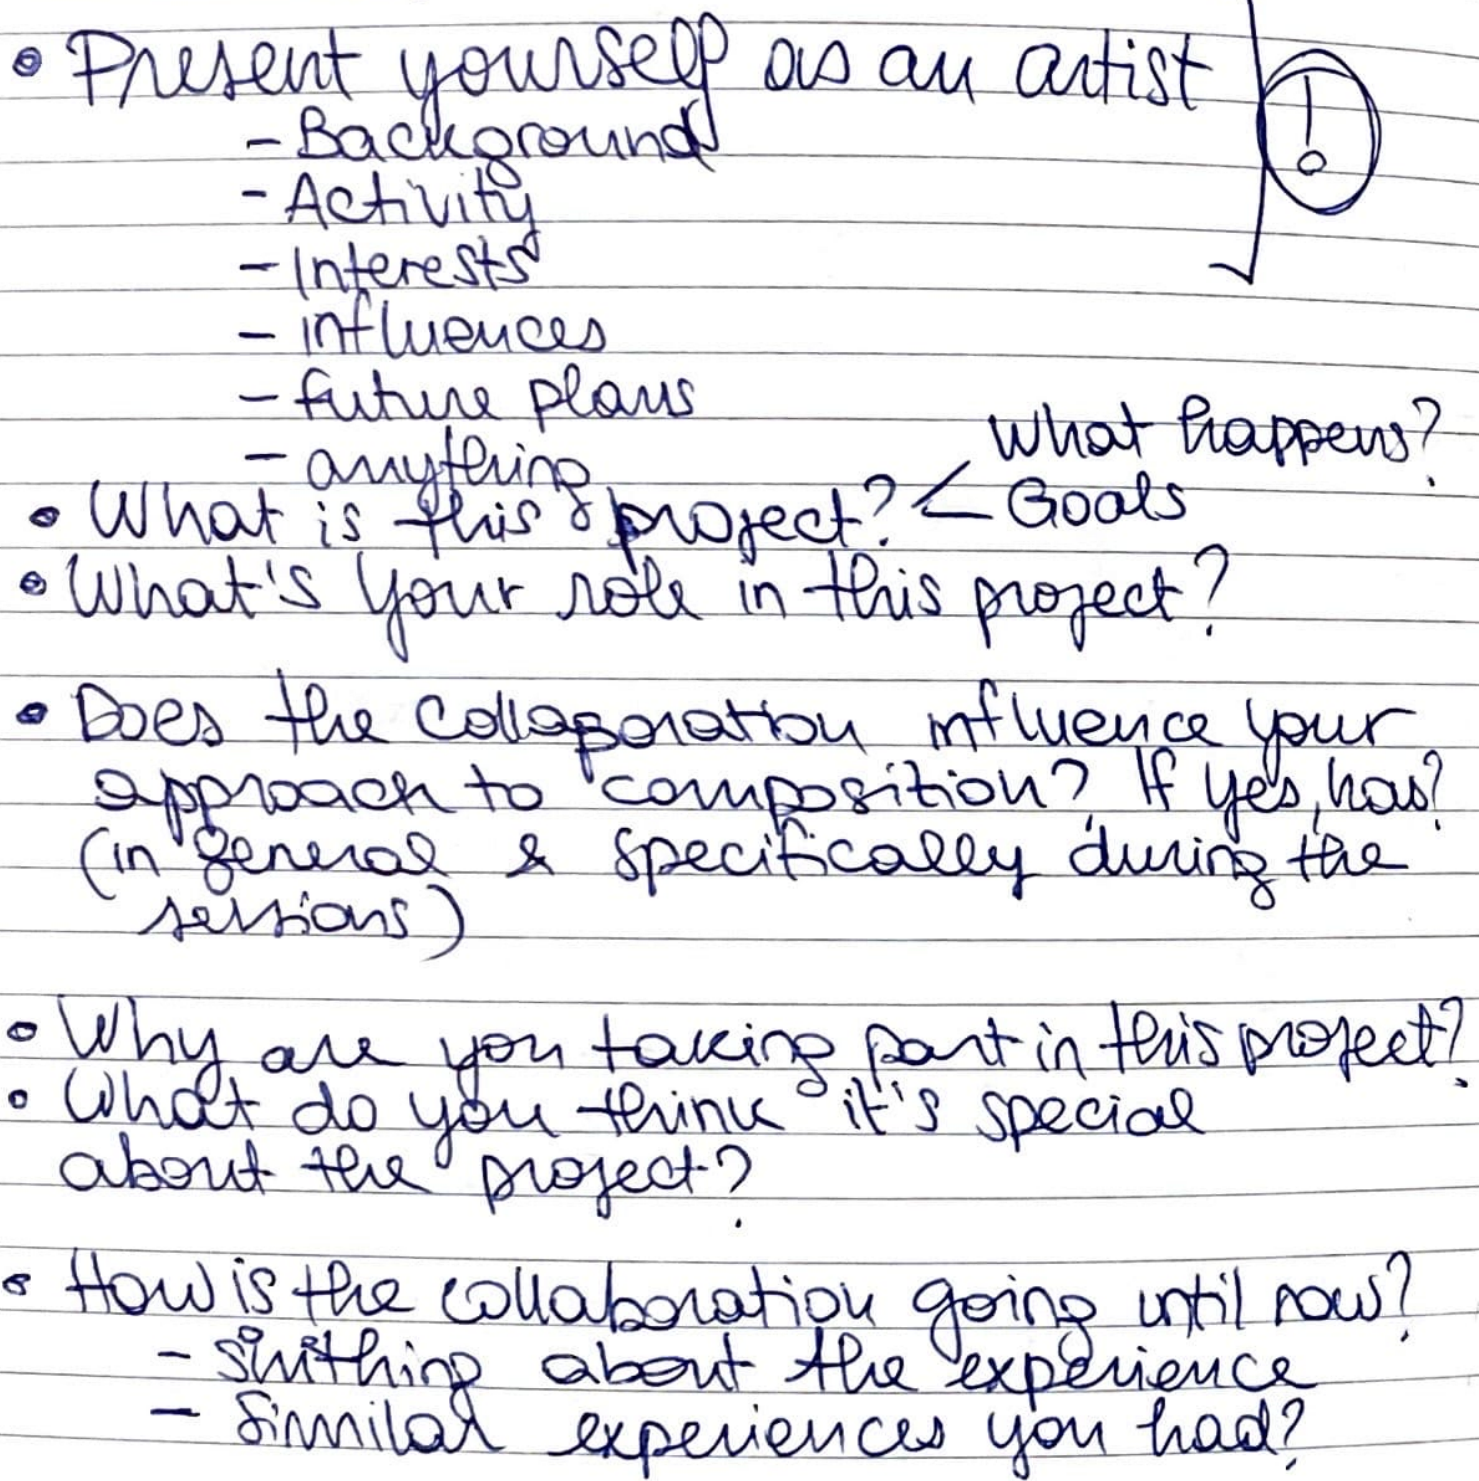 • Present yourself as an artist
- Background
- Activity
- Interests
- influences
- future plans
- anything
What happens?
• What is this project? < Goals
• What's your role in this project?
• Does the collaboration influence your
approach to composition? If yes, how?
(in general & specifically during the
sessions)
• Why are you taking part in this project?
• What do you think it's special
about the project?
• How is the collaboration going until now?
- smthing about the experience
- Similar experiences you had?
!